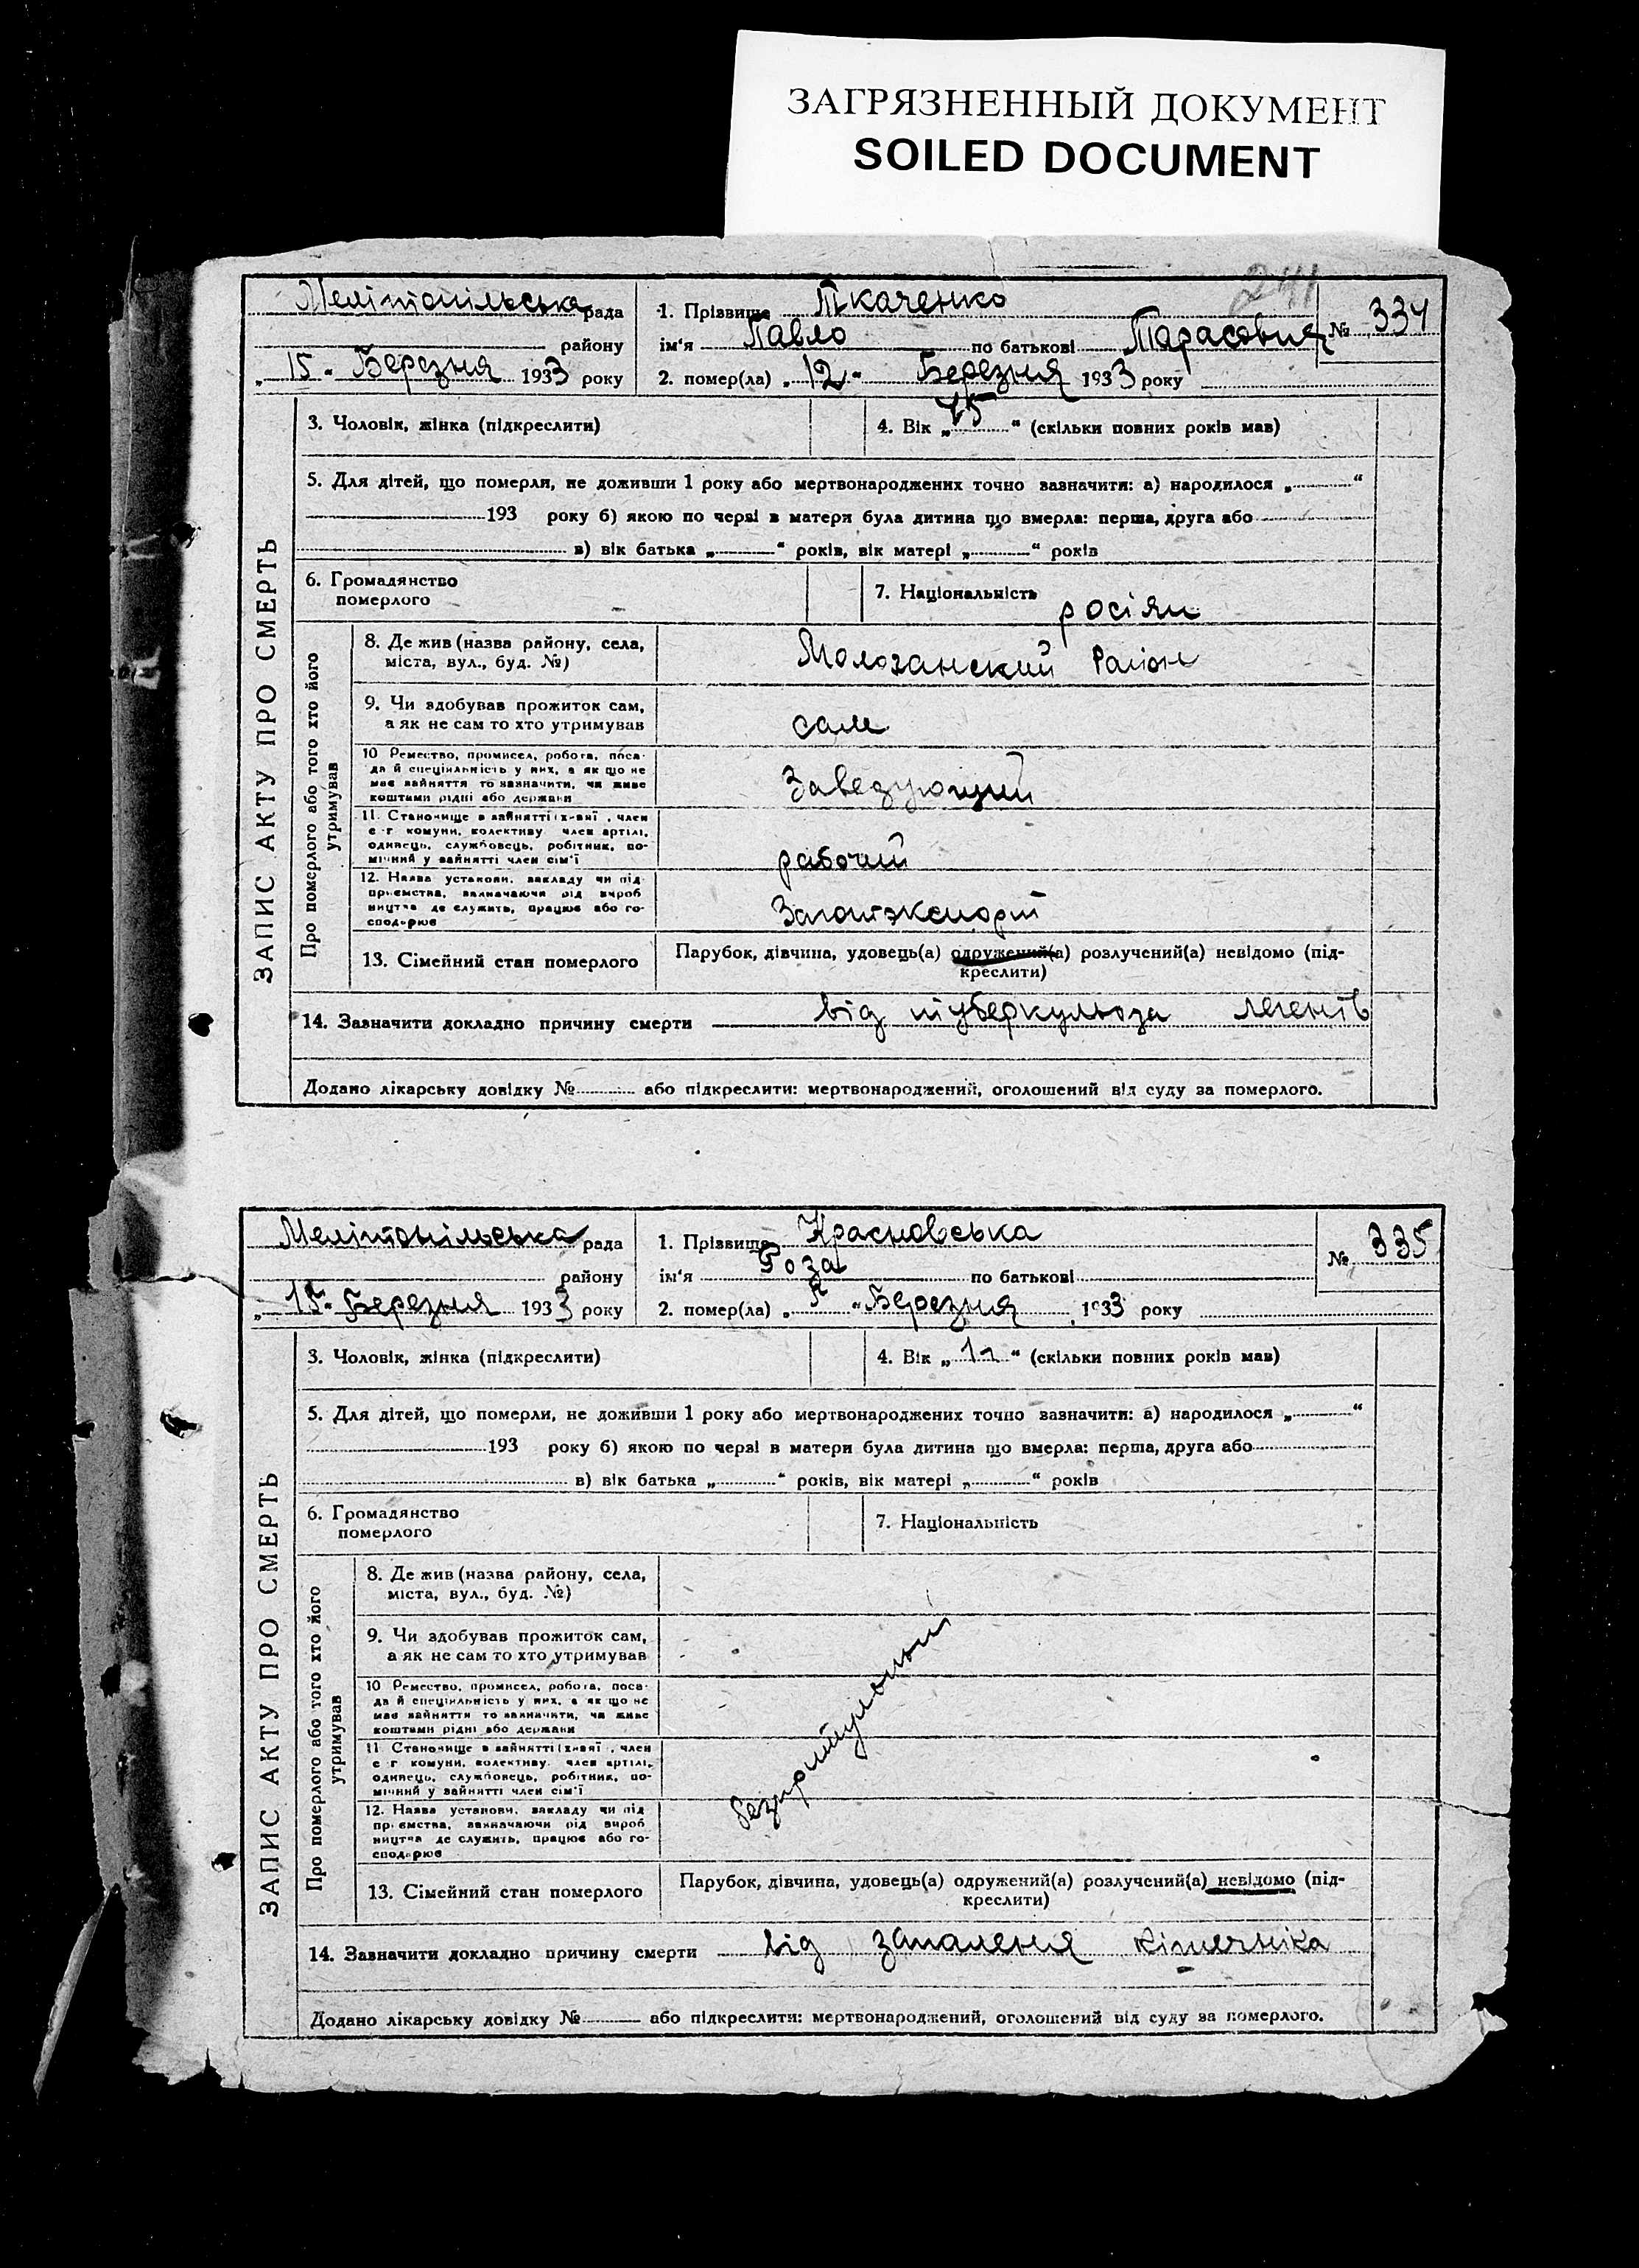 ЗАГРЯЗНЕННЫЙ ДОКУМЕНТ
SOILED DOCUMENT
241
ЗАПИС АКТУ ПРО СМЕРТЬ
Мелітопільська рада
району
„15“ Березня 1933 року
1. Прізвище Ткаченко
ім'я Павло по батькові Тарасовия
№ 334
2. помер(ла) „12“ Березня 1933 року
3. Чоловік, жінка (підкреслити)
4. Вік „45“ (скільки повних років мав)
5. Для дітей, що померли, не доживши 1 року або мертвонароджених точно зазначити: а) народилося „ “
193 року б) якою по черзі в матери була дитина що вмерла: перша, друга або
в) вік батька „ “ років, вік матері „ “ років
6. Громадянство
померлого
7. Національність росіян
Про померлого або того хто його
утримував
8. Де жив (назва району, села,
міста, вул., буд. №)
Молочанский Район
9. Чи здобував прожиток сам,
а як не сам то хто утримував
сам
10 Ремество, промисел, робота, поса-
да й спеціяльність у них, а як що не
має зайняття то зазначити, чи живе
коштами рідні або держави
Заведующий
11. Становище в зайнятті (хазяї, член
с-г комуни, колективу, член артілі,
одинець, службовець, робітник, по-
мічний у зайнятті член сім'ї
рабочий
12. Назва установи, закладу чи під-
приємства, зазначаючи рід вироб
ництва де служить, працює або го-
сподарює
Заготэкспорт
13. Сімейний стан померлого
Парубок, дівчина, удовець(а) одружений(а) розлучений(а) невідомо (під-
креслити)
14. Зазначити докладно причину смерти від туберкульоза легенів
Додано лікарську довідку № або підкреслити: мертвонароджений, оголошений від суду за померлого.
ЗАПИС АКТУ ПРО СМЕРТЬ
Мелітопільська рада
району
„15“ Березня 1933 року
1. Прізвище Красновська
ім'я Роза по батькові
№ 335
2. помер(ла) „ “ Березня 1933 року
3. Чоловік, жінка (підкреслити)
4. Вік „ “ (скільки повних років мав)
5. Для дітей, що померли, не доживши 1 року або мертвонароджених точно зазначити: а) народилося „ “
193 року б) якою по черзі в матери була дитина що вмерла: перша, друга або
в) вік батька „ “ років, вік матері „ “ років
6. Громадянство
померлого
7. Національність
Про померлого або того хто його
утримував
8. Де жив (назва району, села,
міста, вул., буд. №)
9. Чи здобував прожиток сам,
а як не сам то хто утримував
10 Ремество, промисел, робота, поса-
да й спеціяльність у них, а як що не
має зайняття то зазначити, чи живе
коштами рідні або держави
11 Становище в зайнятті (хазяї, член
с-г комуни, колективу, член артілі,
одинець, службовець, робітник, по-
мічний у зайнятті член сім'ї
12. Назва установи, закладу чи під
приємства, зазначаючи рід вироб
ництва де служить, працює або го-
сподарює
безпритульний
13. Сімейний стан померлого
Парубок, дівчина, удовець(а) одружений(а) розлучений(а) невідомо (під-
креслити)
14. Зазначити докладно причину смерти від запаления кішечніка
Додано лікарську довідку № або підкреслити: мертвонароджений, оголошений від суду за померлого.